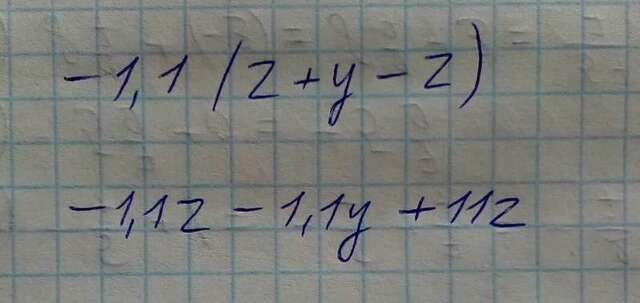 -1,1(z+y-z)
-1,1z-1,1y+11z